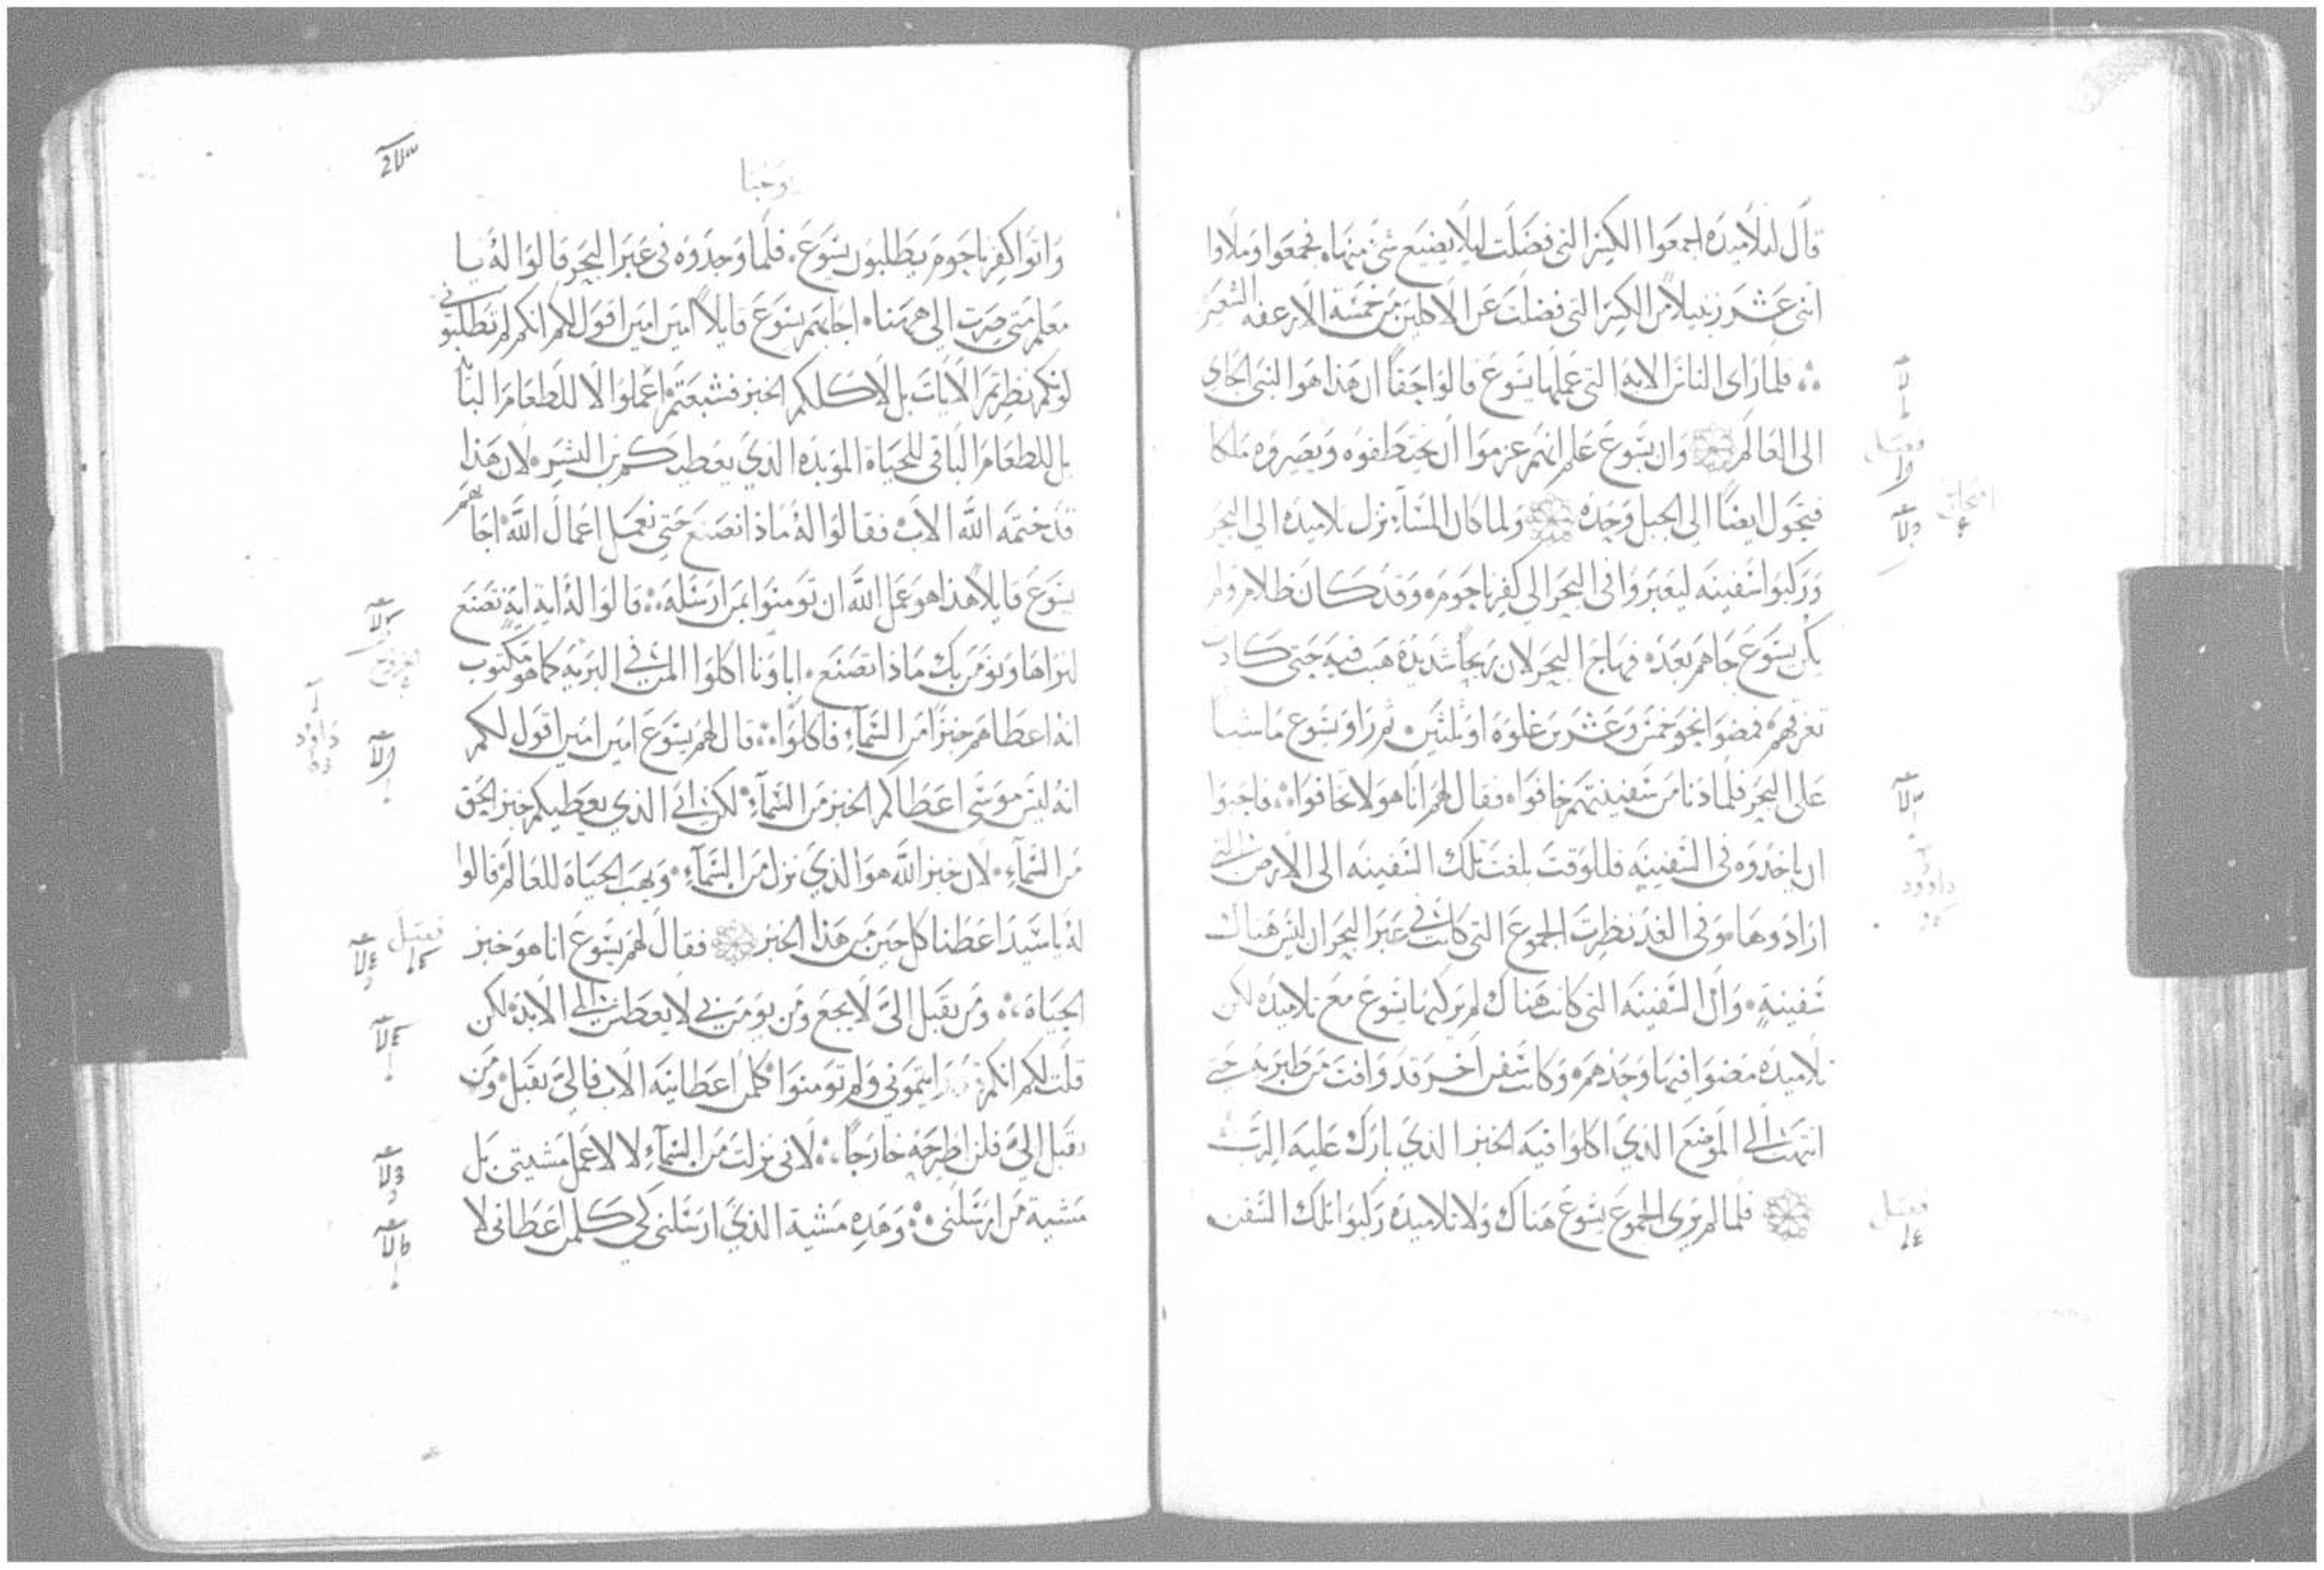 قال لتلاميذه اجمعوا الكسر التي فضلت ليلا يضيع شي منها، فجمعوا وملاوا
اثني عشر زنبيلا من الكسر التي فضلت عن الاكلين من خمسة الارغفه الشعير
فلما راى الناس الايه التي عملها يسوع قالوا حقا ان هذا هو النبي الجاي
الى العالم وان يسوع علم انهم عزموا ان يختطفوه ويصيروه ملكا
فتحول ايضا الى الجبل وحده ولما كان المساء نزل تلاميذه الى البحر
وركبوا سفينه ليعبروا في البحر الى كفرناحوم، وقد كان ظلام ولم
يكن يسوع جاهم بعد، فهاج البحر لان ريحا شديده هبت فيه حتى كادت
تغرقهم، فمضوا نحو خمس وعشرين غلوه او ثلثين، ثم راو يسوع ماشيا
على البحر فلما دنا من سفينتهم خافوا، فقال لهم انا هو لا تخافوا، فاحبوا
ان ياخذوه في السفينه فللوقت بلغت تلك السفينه الى الارض التي
ارادوها، وفي الغد نظرت الجموع التي كانت في عبر البحر ان ليس هناك
سفينه، وان السفينه التي كانت هناك لم يركبها يسوع مع تلاميذه لكن
تلاميذه مضوا فيها وحدهم، وكانت سفن اخر قد وافت من طبريه حتى
انتهت الى الموضع الذي اكلوا فيه الخبز الذي بارك عليه الرب
فلما لم يرى الجموع يسوع هناك ولا تلاميذه ركبوا تلك السفن
فصل
داوود
فصل
١٤
يوحنا
واتوا كفرناحوم يطلبون يسوع، فلما وجدوه في عبر البحر قالوا له يا
معلم متى صرت الى ههنا، اجابهم يسوع قايلا امين امين اقول لكم انكم لم تطلبوني
لونكم نظرتم الايات بل لاكلكم الخبز فشبعتم، اعملوا لا للطعام البالي
بل للطعام الباقي للحياة الموبده الذي يعطيكم بن البشر، لان هذا
قد ختمه الله الاب، فقالوا له ماذا نصنع حتى نعمل اعمال الله، اجابهم
يسوع قايلا هذا هو عمل الله ان تومنوا بمن ارسله، قالوا له اية اية تصنع
لنراها ونومن بك ماذا تصنع، اباونا اكلوا المن في البريه كما هو مكتوب
انه اعطاهم خبزا من السماء فاكلوا، قال لهم يسوع امين امين اقول لكم
انه ليس موسى اعطاكم الخبز من السماء، لكن ابي الذي يعطيكم خبز الحق
من السماء، لان خبز الله هو الذي نزل من السماء، ويهب الحياة للعالم، قالوا
له يا سيد اعطنا كل حين من هذا الخبز فقال لهم يسوع انا هو خبز
الحياة، ومن يقبل الي لا يجع ومن يومن بي لا يعطش الى الابد، لكن
قلت لكم انكم قد رايتموني ولم تومنوا، كلمن اعطانيه الاب فالي يقبل، ومن
يقبل الي فلن اطرحه خارجا، لاني نزلت من السماء لا لاعمل مشيتي بل
مشية من ارسلني، وهذه مشية الذي ارسلني لكي كلمن اعطاني لا
الخروج
داود
فصل
١٤